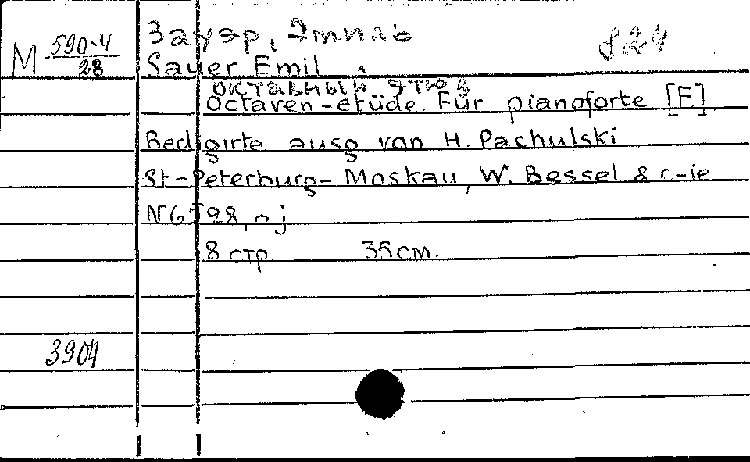 Зауэр, Эмиль
М 590-4/28 Sauer Emil.
824
октавный этюд
Octaven-etüde. Für pianoforte [F]
Redigirte ausg von H. Pachulski
St-Peterburg- Moskau, W. Bessel & c-ie
N6598, o j
8 стр 35 см.
3904